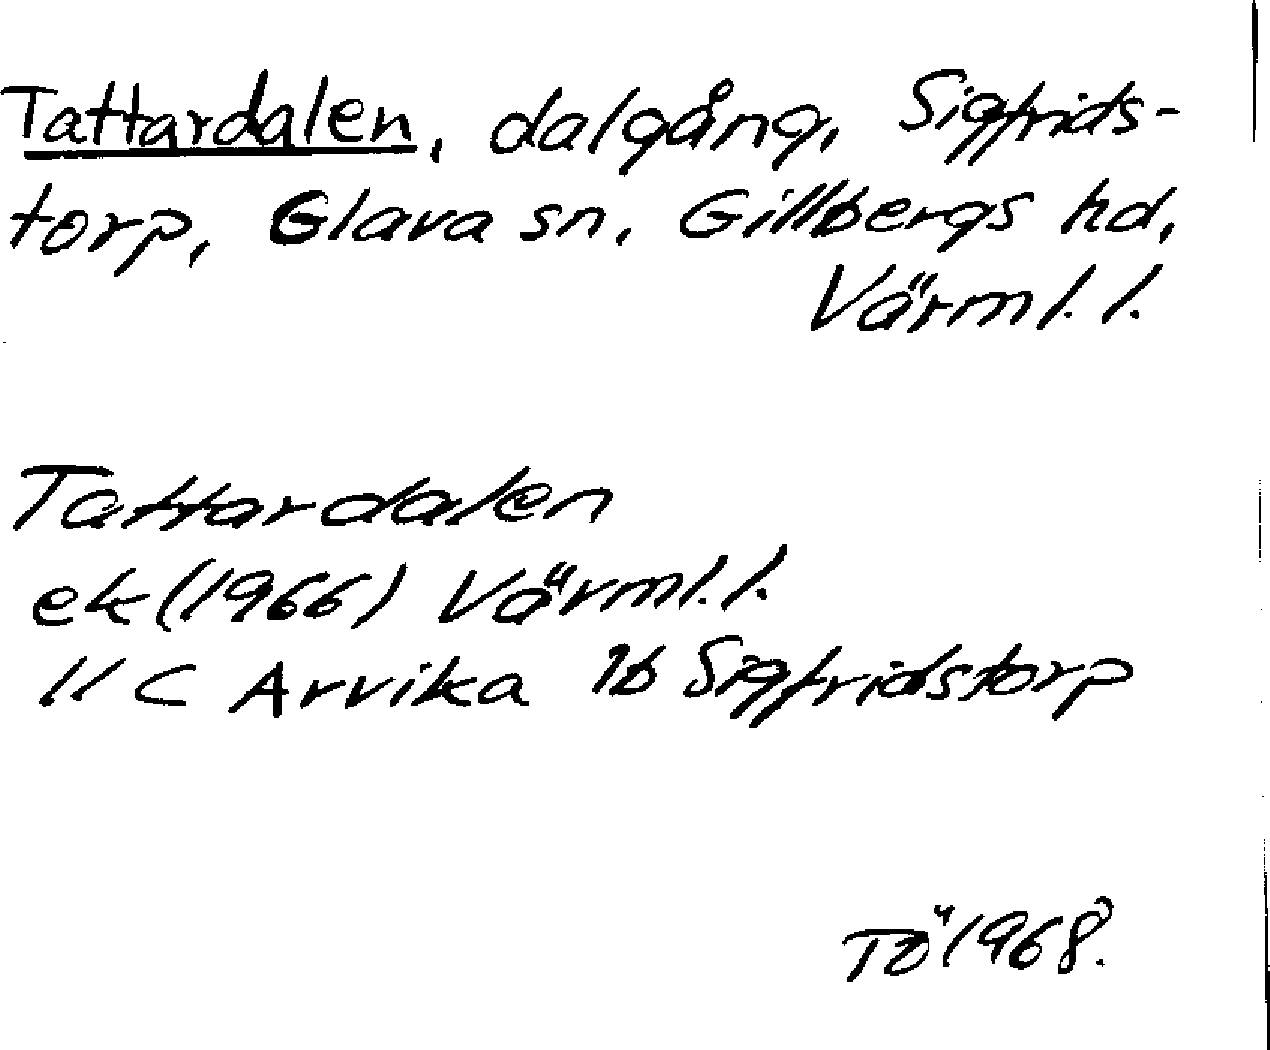 Tattardalen, dalgång, Sigfrids-
torp, Glava sn, Gillbergs hd,
Värml. l.
Tattardalen
ek (1966) Värml. l.
11 C Arvika 1b Sigfridstorp
TÖ 1968.